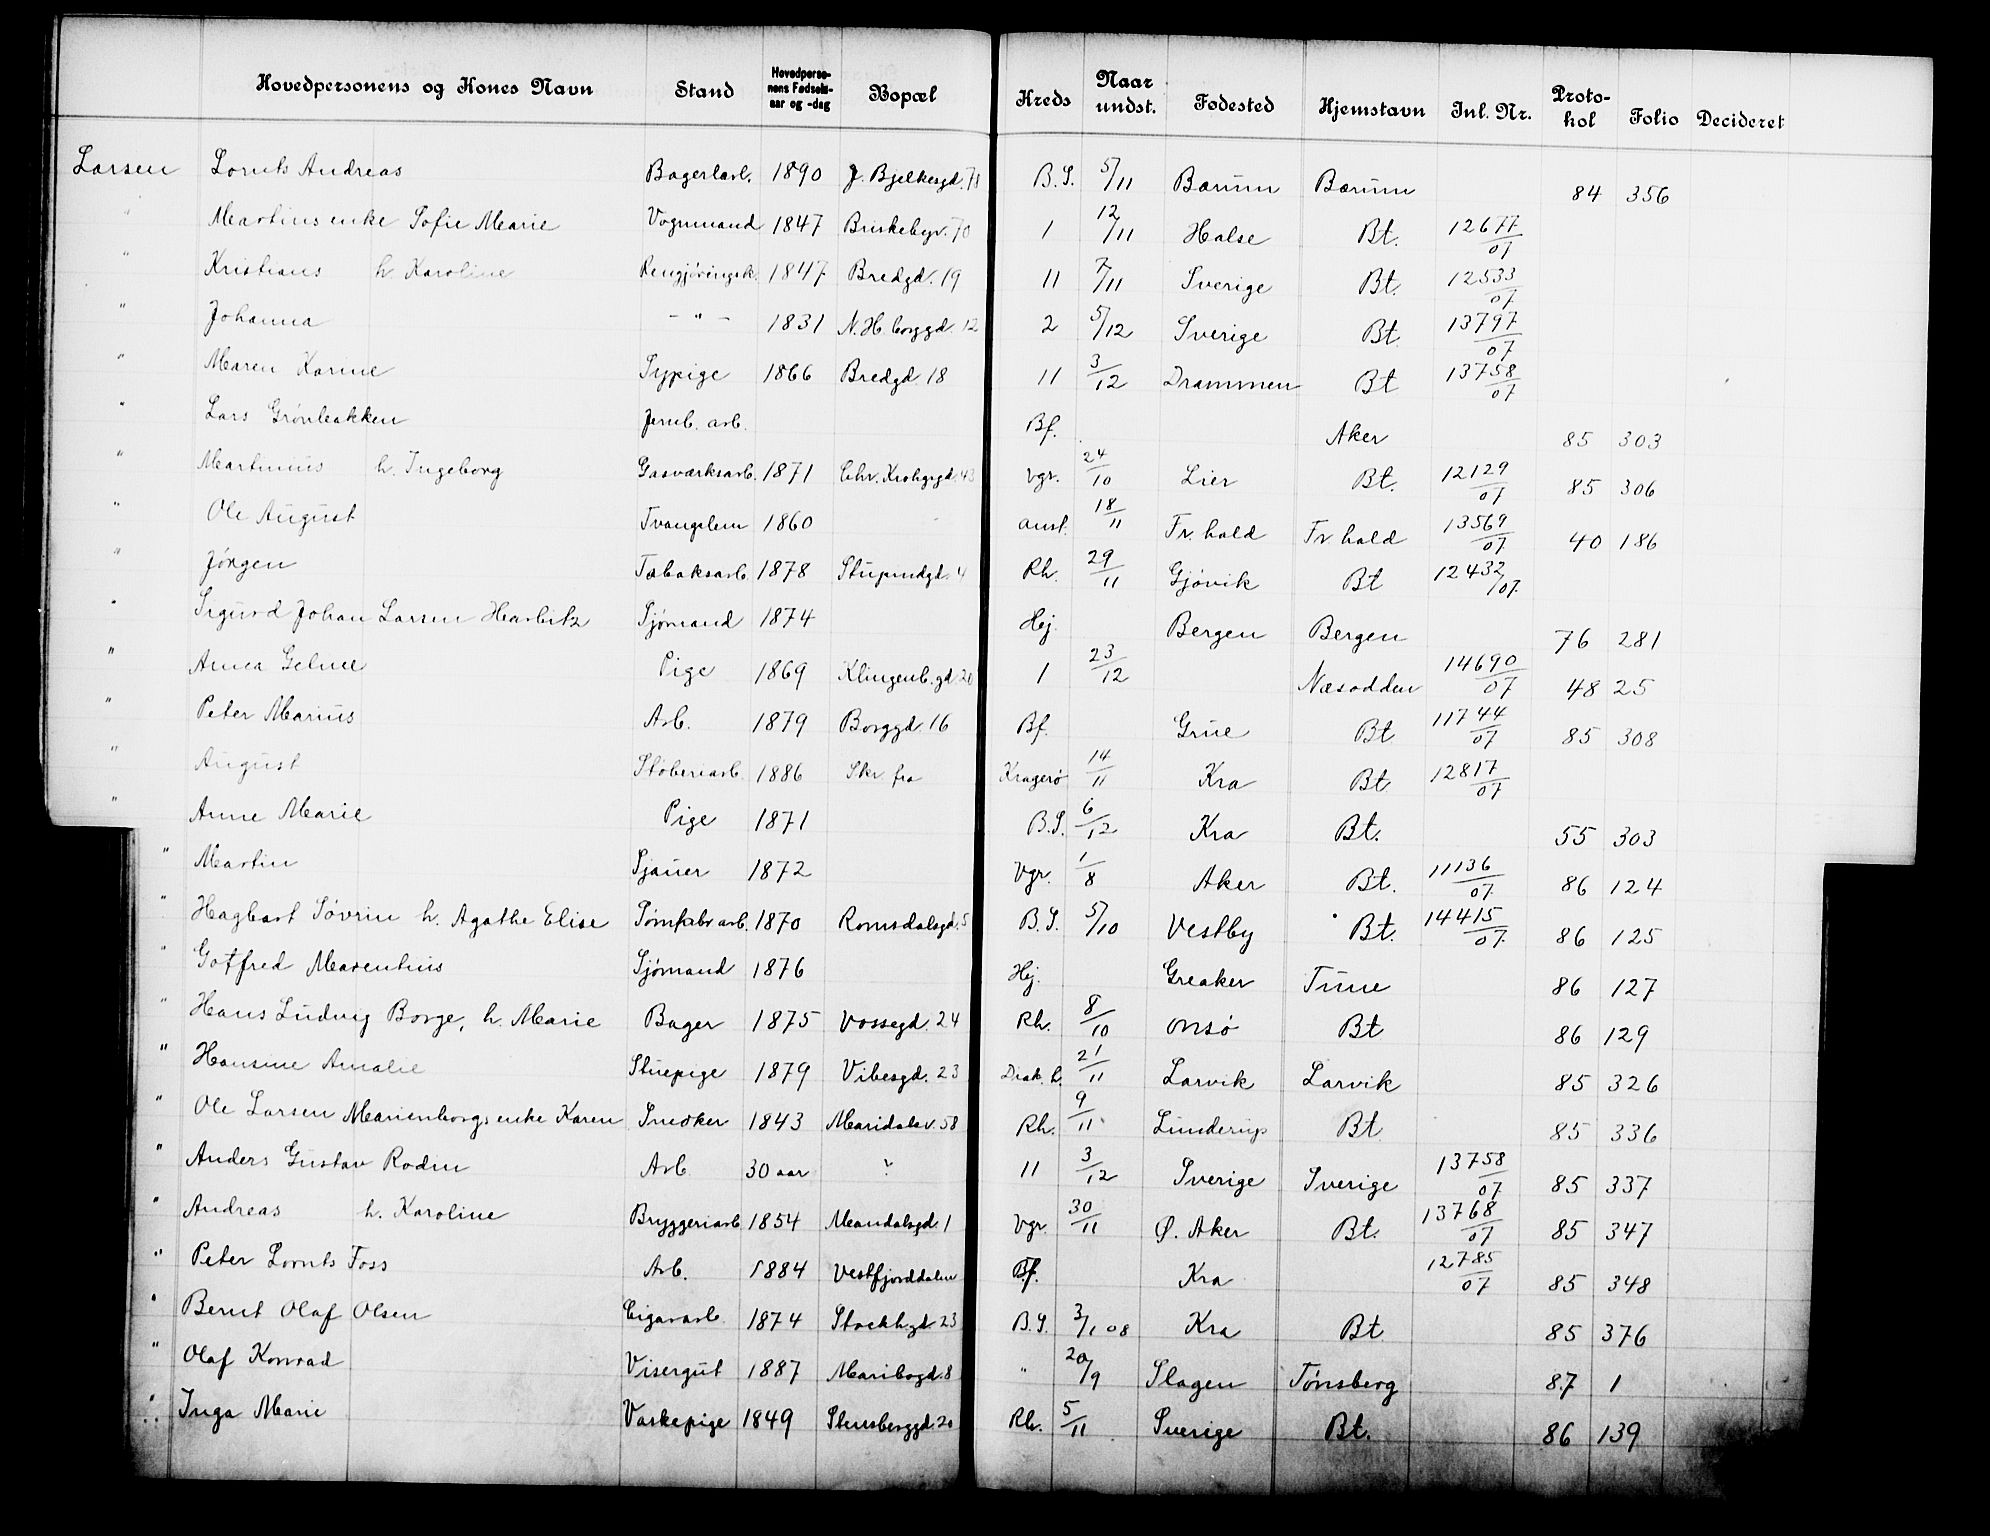 Hovedpersonens og Kones Navn Stand Hovedperso-nens Fødsels-aar og -dag Bopæl Kreds Naar undst. Fødested Hjemstavn Inl. Nr. Proto-kol Folio Decideret
Larsen Lornts Andreas Bagerlærl. 1890 J. Bjelkesgd. 71 B.S. 5/11 Bærum Bærum 84 356
" Martins enke Sofie Marie Vognmand 1847 Briskebyv. 70 1 12/11 Halse Bt. 12677/07
" Kristians h. Karoline Rengjøringsk. 1847 Bredgd. 19 11 7/11 Sverige Bt. 12533/07
" Johanna - " - 1831 N. H. borggd. 12 2 5/12 Sverige Bt. 13797/07
" Maren Karine Sypige 1866 Bredgd 18 11 3/12 Drammen Bt 13758/07
" Lars Grønbakken Jernb. arb. Bf. Aker 85 303
" Martinius h. Ingeborg Gasværksarb. 1871 Chr. Krohgsgd. 43 Vgr. 24/10 Lier Bt. 12129/07 85 306
" Ole August Tvangslem 1860 anst. 18/11 Fr. hald Fr hald 13569/07 40 186
" Jörgen Tobaksarb. 1878 Stupindgd. 4 Rh. 29/11 Gjøvik Bt 12432/07.
" Sigurd Johan Larsen Harbitz Sjømand 1874 Hej. Bergen Bergen 76 281
" Anna Geline Pige 1869 Klingenb. gd. 20 1 23/12 Næsodden 14690/07 48 25
" Peter Marius Arb. 1879 Borggd. 16 Bf. Grue Bt. 11744/07 85 308
" August Støberiarb. 1886 Skr fra Kragerø 14/11 Kra Bt 12817/07
" Anne Marie Pige 1871 B.S. 6/12 Kra Bt. 55 303
" Martin Sjauer 1872 Vgr. 1/8 Aker Bt. 11136/07. 86 124
" Hagbart Sövrin h. Agathe Elise Sømfabr arb. 1870 Romsdalsgd. 5 B.S. 5/10 Vestby Bt. 14415/07. 86 125
" Gotfred Marenthius Sjømand 1876 Hej. Greaker Tune 86 127
" Hans Ludvig Borge, h. Marie Bager 1875 Vossegd. 24 Rh. 8/10 Onsø Bt 86 129
" Hansine Amalie Stuepige 1879 Vibesgd. 23 Diak. h. 21/11 Larvik Larvik 85 326
" Ole Larsen Marienborgs enke Karen Snedker 1843 Maridalsv. 58 Rh. 9/11 Linderup Bt 85 336
" Anders Gustav Rodin Arb. 30 aar ? 11 3/12 Sverige Sverige 13758/07 85 337
" Andreas h. Karoline Bryggeriarb 1854 Mandalsgd. 1 Vgr. 30/11 Ø. Aker Bt. 13768/07 85 347
" Peter Lornts Foss Arb. 1884 Vestfjorddalen Bf. Kra 12785/07 85 348
" Bernt Olaf Olsen Cigararb. 1874 Stockh.gd. 23 B.S. 3/1 08 Kra Bt 85 376
" Olaf Konrad Visergut 1887 Maribogd. 8 " 20/9 Slagen Tønsberg 87 1
" Inga Marie Vaskepige 1849 Stensberggd 20 Rh. 5/11 Sverige Bt. 86 139